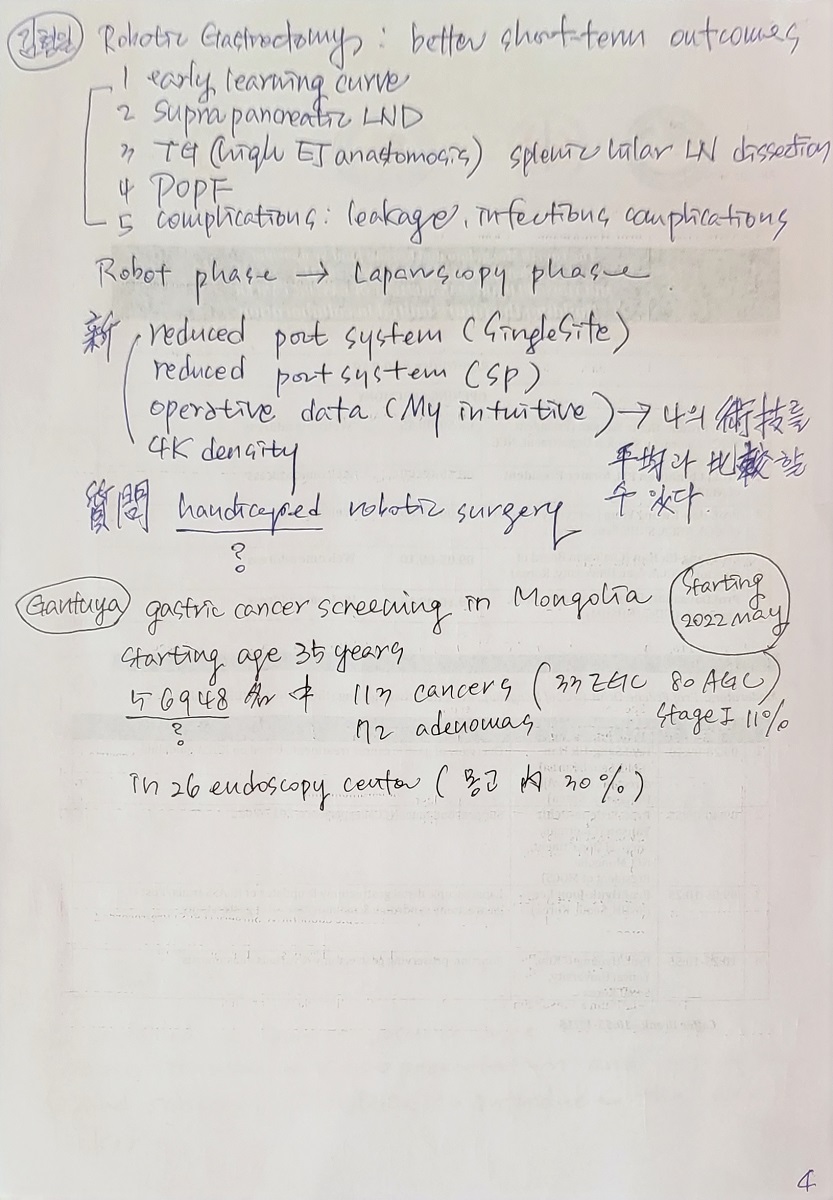 김형일 Robotic Gastrectomy : better short-term outcomes
1 early learning curve
2 suprapancreatic LND
3 TG (high EJ anastomosis) splenic hilar LN dissection
4 POPF
5 complications : leakage, infectious complications
Robot phase → Laparoscopy phase
新 reduced port system (SingleSite)
reduced port system (SP)
operative data (My intuitive) → 나의 術技를
4K density 平均과 比較할
수 있다.
質問 handicapped robotic surgery
?
Ganfuya gastric cancer screening in Mongolia Starting
2022 May
starting age 35 years
56948 名 中 113 cancers (33 EGC 80 AGC)
? 72 adenomas stage I 11%
in 26 endoscopy center (몽고 內 30%)
4